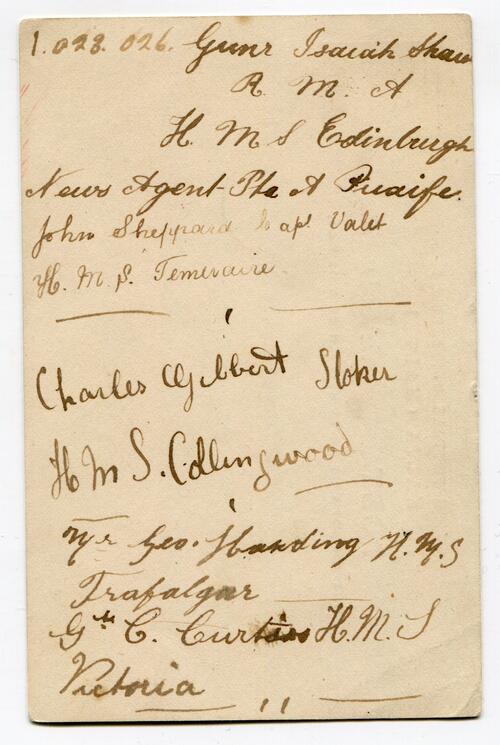 1.028.026. Gunr Isaiah Shaw
R. M. A
H. M S Edinburgh
News Agent Pte A Quaife.
John Sheppard Capt Valet
H. M. S. Temeraire
Charles Gibbert Stoker
H M S. Collingwood
Mr Geo. Harding H.M.S
Trafalgar
Gnr C. Curtiss H.M.S
Victoria